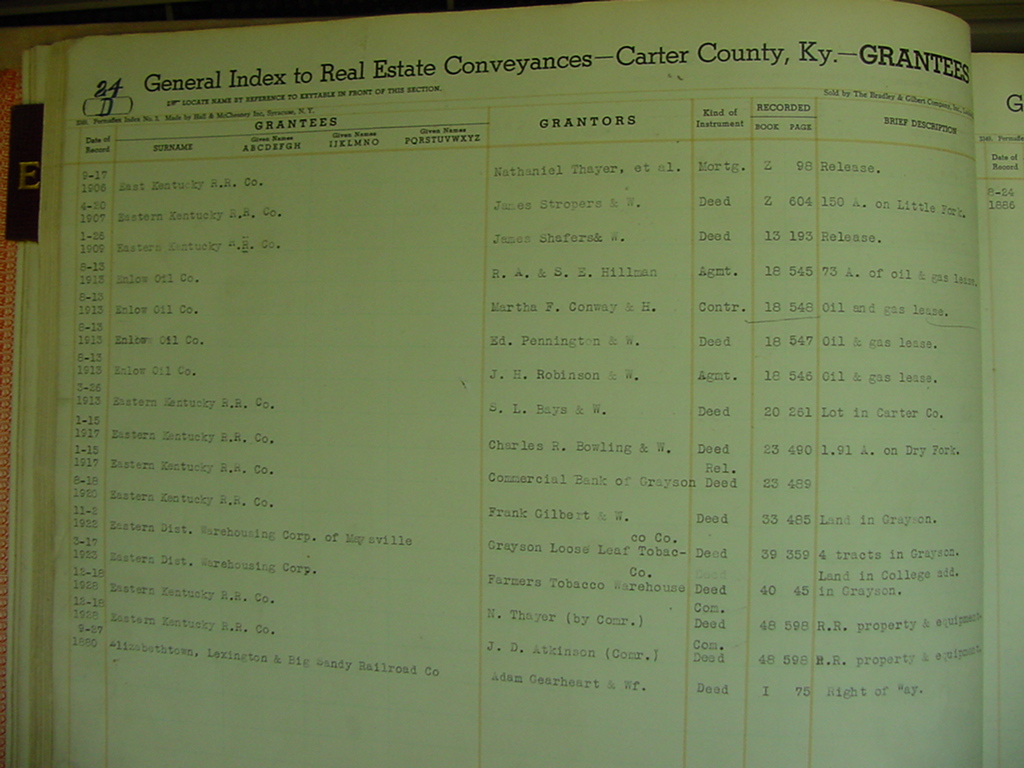 24
D
General Index to Real Estate Conveyances—Carter County, Ky.—GRANTEES
LOCATE NAME BY REFERENCE TO KEYTABLE IN FRONT OF THIS SECTION.
Sold by The Bradley & Gilbert Company, Inc.
Made by Hall & McChesney Inc, Syracuse, N. Y.
Date of Record GRANTEES GRANTORS Kind of Instrument RECORDED BRIEF DESCRIPTION
SURNAME Given Names ABCDEFGH Given Names IJKLMNO Given Names PQRSTUVWXYZ BOOK PAGE
9-17
1906 East Kentucky R.R. Co. Nathaniel Thayer, et al. Mortg. Z 98 Release.
4-20
1907 Eastern Kentucky R.R. Co. James Stropers & W. Deed Z 604 150 A. on Little Fork.
1-26
1909 Eastern Kentucky R.R. Co. James Shafers& W. Deed 13 193 Release.
8-13
1913 Enlow Oil Co. R. A. & S. E. Hillman Agmt. 18 545 73 A. of oil & gas lease.
8-13
1913 Enlow Oil Co. Martha F. Conway & H. Contr. 18 548 Oil and gas lease.
8-13
1913 Enlow Oil Co. Ed. Pennington & W. Deed 18 547 Oil & gas lease.
8-13
1913 Enlow Oil Co. J. H. Robinson & W. Agmt. 18 546 Oil & gas lease.
3-26
1913 Eastern Kentucky R.R. Co. S. L. Bays & W. Deed 20 261 Lot in Carter Co.
1-15
1917 Eastern Kentucky R.R. Co. Charles R. Bowling & W. Deed 23 490 1.91 A. on Dry Fork.
1-15
1917 Eastern Kentucky R.R. Co. Commercial Bank of Grayson Rel. Deed 23 489
8-18
1920 Eastern Kentucky R.R. Co. Frank Gilbert & W. Deed 33 485 Land in Grayson.
11-2
1922 Eastern Dist. Warehousing Corp. of Maysville Grayson Loose Leaf Tobac- co Co. Deed 39 359 4 tracts in Grayson.
3-17
1923 Eastern Dist. Warehousing Corp. Farmers Tobacco Warehouse Co. Deed 40 45 Land in College add. in Grayson.
12-18
1928 Eastern Kentucky R.R. Co. N. Thayer (by Comr.) Com. Deed 48 598 R.R. property & equipment
12-18
1928 Eastern Kentucky R.R. Co. J. D. Atkinson (Comr.) Com. Deed 48 598 R.R. property & equipment
9-27
1880 Elizabethtown, Lexington & Big Sandy Railroad Co Adam Gearheart & Wf. Deed I 75 Right of Way.
E
G
Date of Record
8-24
1886